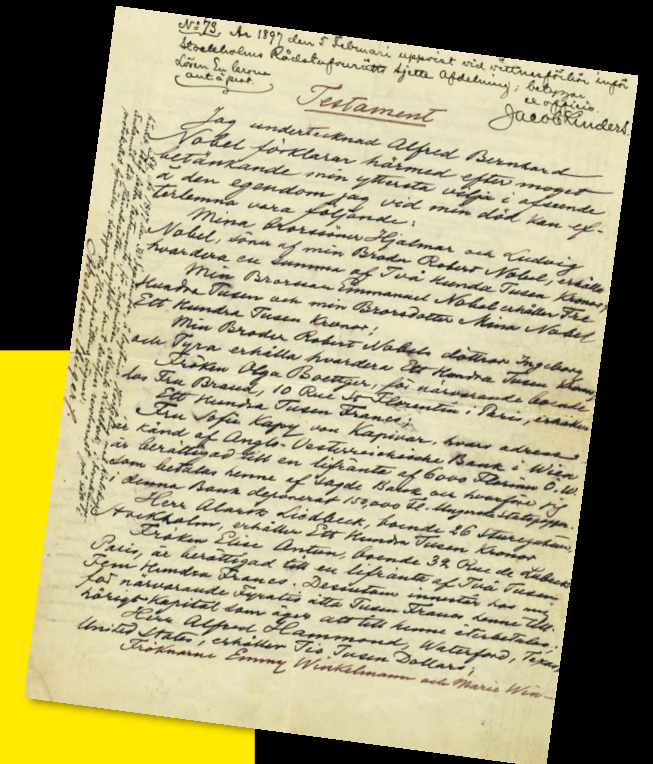 No 73. År 1897 den 5 Februari uppvist vid vittnesförhör inför
Stockholms Rådstufvurätts sjette Afdelning; betygar
Lösen En krona
ex officio.
Jacob Linders.
Testament
Jag undertecknad Alfred Bernhard
Nobel förklarar härmed efter moget
betänkande min yttersta vilja i afseende
å den egendom jag vid min död kan ef-
terlemna vara följande:
Mina Brorsöner Hjalmar och Ludvig
Nobel, söner af min Broder Robert Nobel, erhålla
hvardera en summa af Två Hundra Tusen Kronor;
Min Brorson Emmanuel Nobel erhåller Tre
Hundra Tusen och min Brorsdotter Mina Nobel
Ett Hundra Tusen Kronor;
Min Broder Robert Nobels döttrar Ingeborg
och Tyra erhålla hvardera Ett Hundra Tusen Kronor;
Fröken Olga Boettger, för närvarande boende
hos Fru Brand, 10 Rue St Florentin i Paris, erhåller
Ett Hundra Tusen Francs;
Fru Sofie Kapy von Kapivar, hvars adress
är känd af Anglo-Oesterreichische Bank i Wien
är berättigad till en lifränta af 6000 Florins Ö.W.
som betalas henne af sagde Bank och hvarföre jag
i denna Bank deponerat 150,000 Fl. i Ungerska statspapper.
Herr Alarik Liedbeck, boende 26 Sturegatan,
Stockholm, erhåller Ett Hundra Tusen Kronor
Fröken Elise Antun, boende 32 Rue de Lubeck
Paris, är berättigad till en lifränta af Två Tusen
Fem Hundra Francs. Desutom innestår hos mig
för närvarande Fyratio åtta Tusen Francs henne till-
hörigt Kapital som äger att till henne återbetalas;
Herr Alfred Hammond, Waterford, Texas,
United States, erhåller Tio Tusen Dollars;
Fröknarne Emmy Winkelmann och Marie Win-